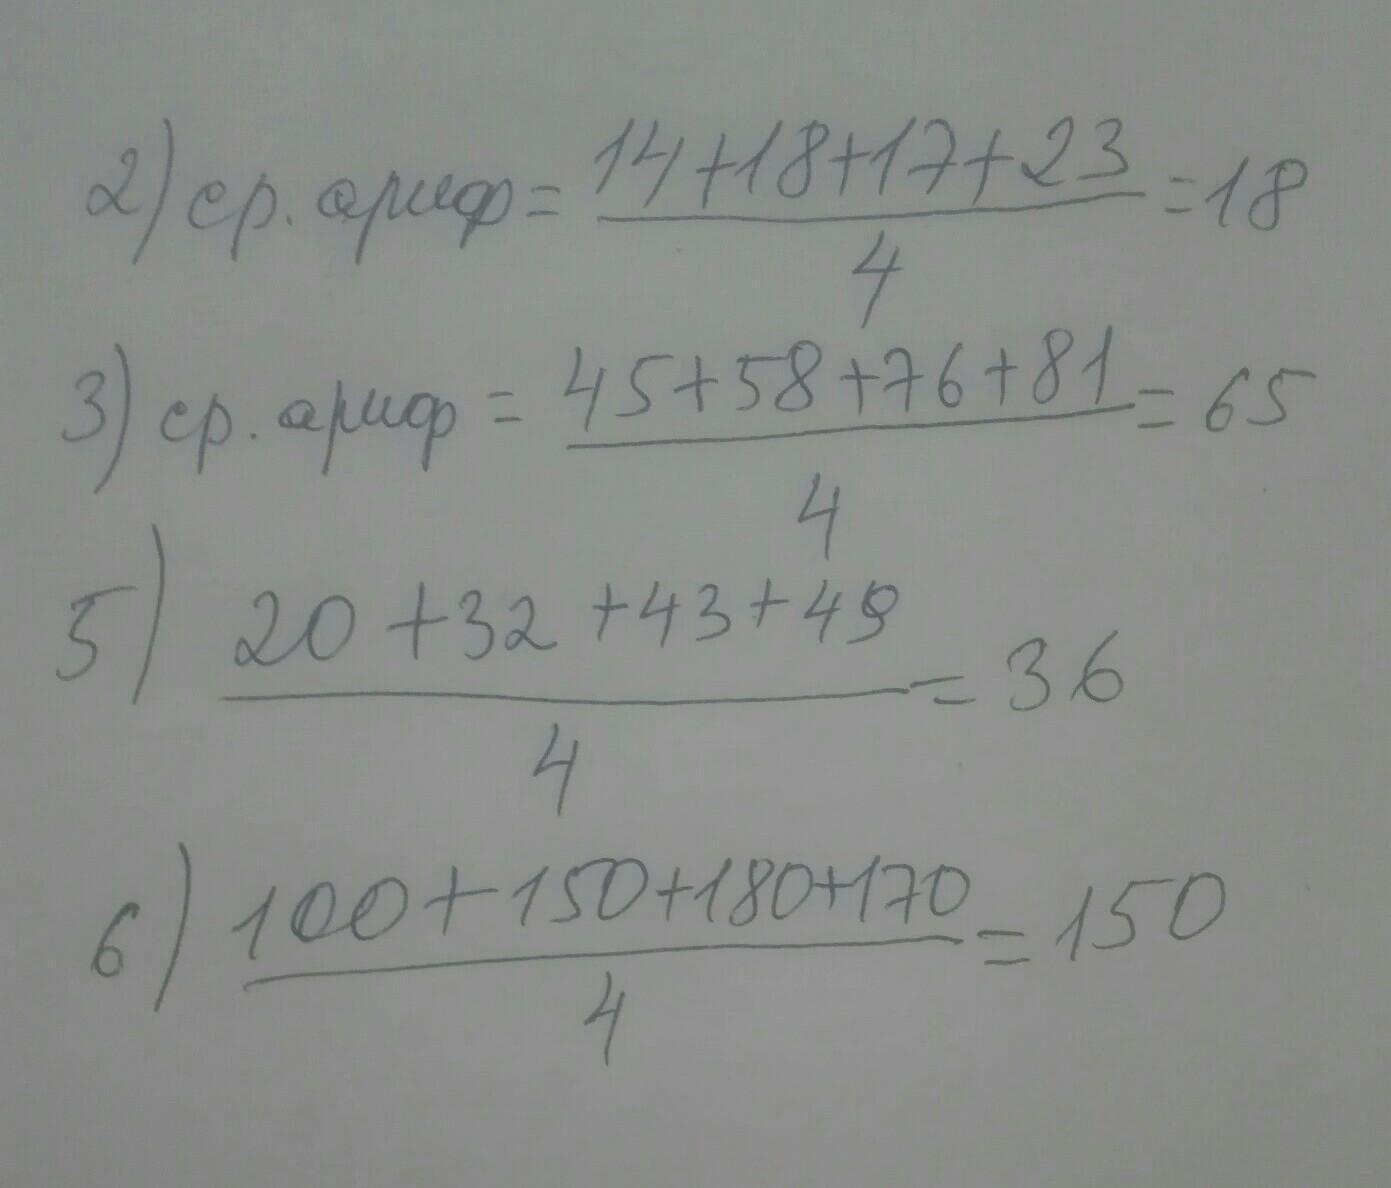 2) ср. ариф = 14+18+17+23 = 18
4
3) ср. ариф = 45+58+76+81 = 65
4
5) 20+32+43+49 = 36
4
6) 100+150+180+170 = 150
4